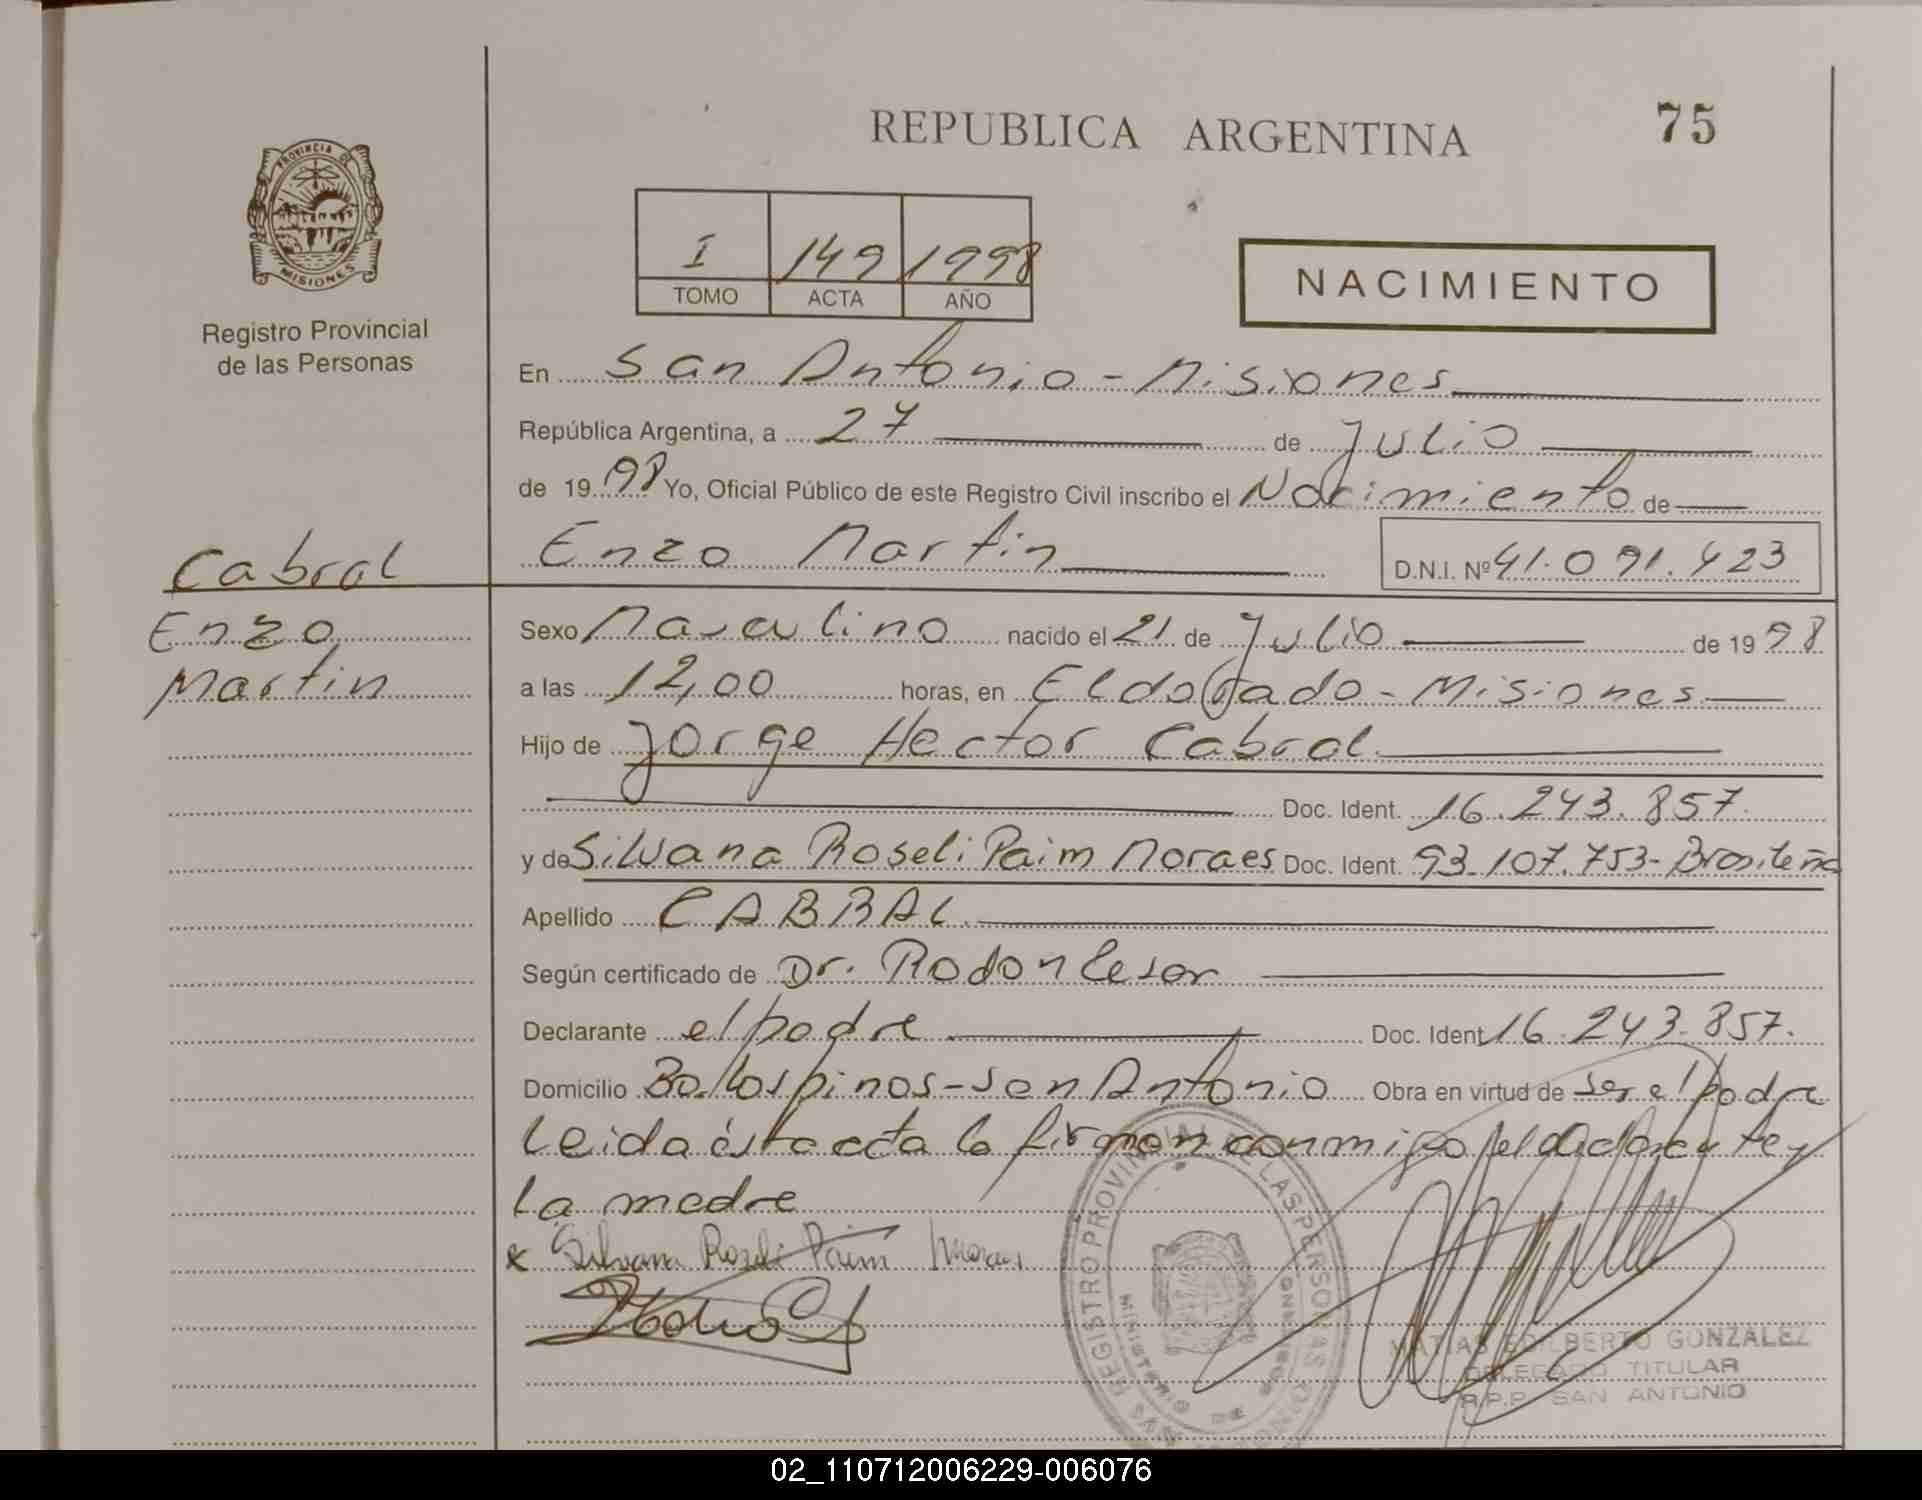 REPUBLICA ARGENTINA
75
PROVINCIA DE
MISIONES
Registro Provincial
de las Personas
I 149 1998
TOMO ACTA AÑO
NACIMIENTO
En San Antonio - Misiones
República Argentina, a 27 de Julio
de 1998 Yo, Oficial Público de este Registro Civil inscribo el Nacimiento de
Cabral
Enzo Martin
D.N.I. Nº 41.091.423
Enzo
Martin
Sexo Masculino nacido el 21 de Julio de 1998
a las 12,00 horas, en Eldorado - Misiones
Hijo de Jorge Hector Cabral
Doc. Ident. 16.243.857.
y de Silvana Roseli Paim Moraes Doc. Ident. 93.107.753 - Brasileña
Apellido CABRAL
Según certificado de Dr. Rodon Cesar
Declarante el padre Doc. Ident 16.243.857.
Domicilio Bo. Los pinos - San Antonio Obra en virtud de ser el padre
Leida ésta acta la firman conmigo el declarante y
la madre
x Silvana Roseli Paim Moraes
REGISTRO PROVINCIAL DE LAS PERSONAS
MINISTERIO DE GOBIERNO
MATIAS EDILBERTO GONZALEZ
DELEGADO TITULAR
R.P.P. SAN ANTONIO
02_110712006229-006076